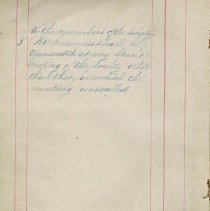 to the members of the society.
3 No business shall be
transacted at any special
meeting of the Society other
than that for which the
meeting was called